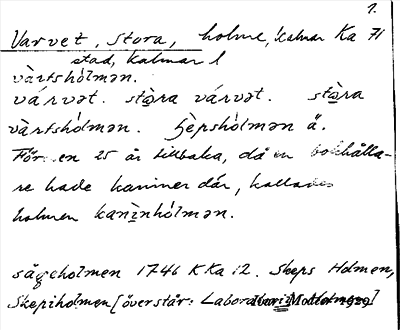 1.
Varvet, Stora, holme, Kalmar Ka 71
stad, Kalmar l
vàrtshólmən.
várvət. stɷ̀ra várvət. stɷ̀ra
vàrtshólmən. ʃèpshólmən ä.
För en 25 år tillbaka, då en bokhålla-
re hade kaniner där, kallades
holmen kanìnhólmən.
sågeholmen 1746 K Ka 12. Skeps Holmen,
Skepsholmen [överstår: Labora